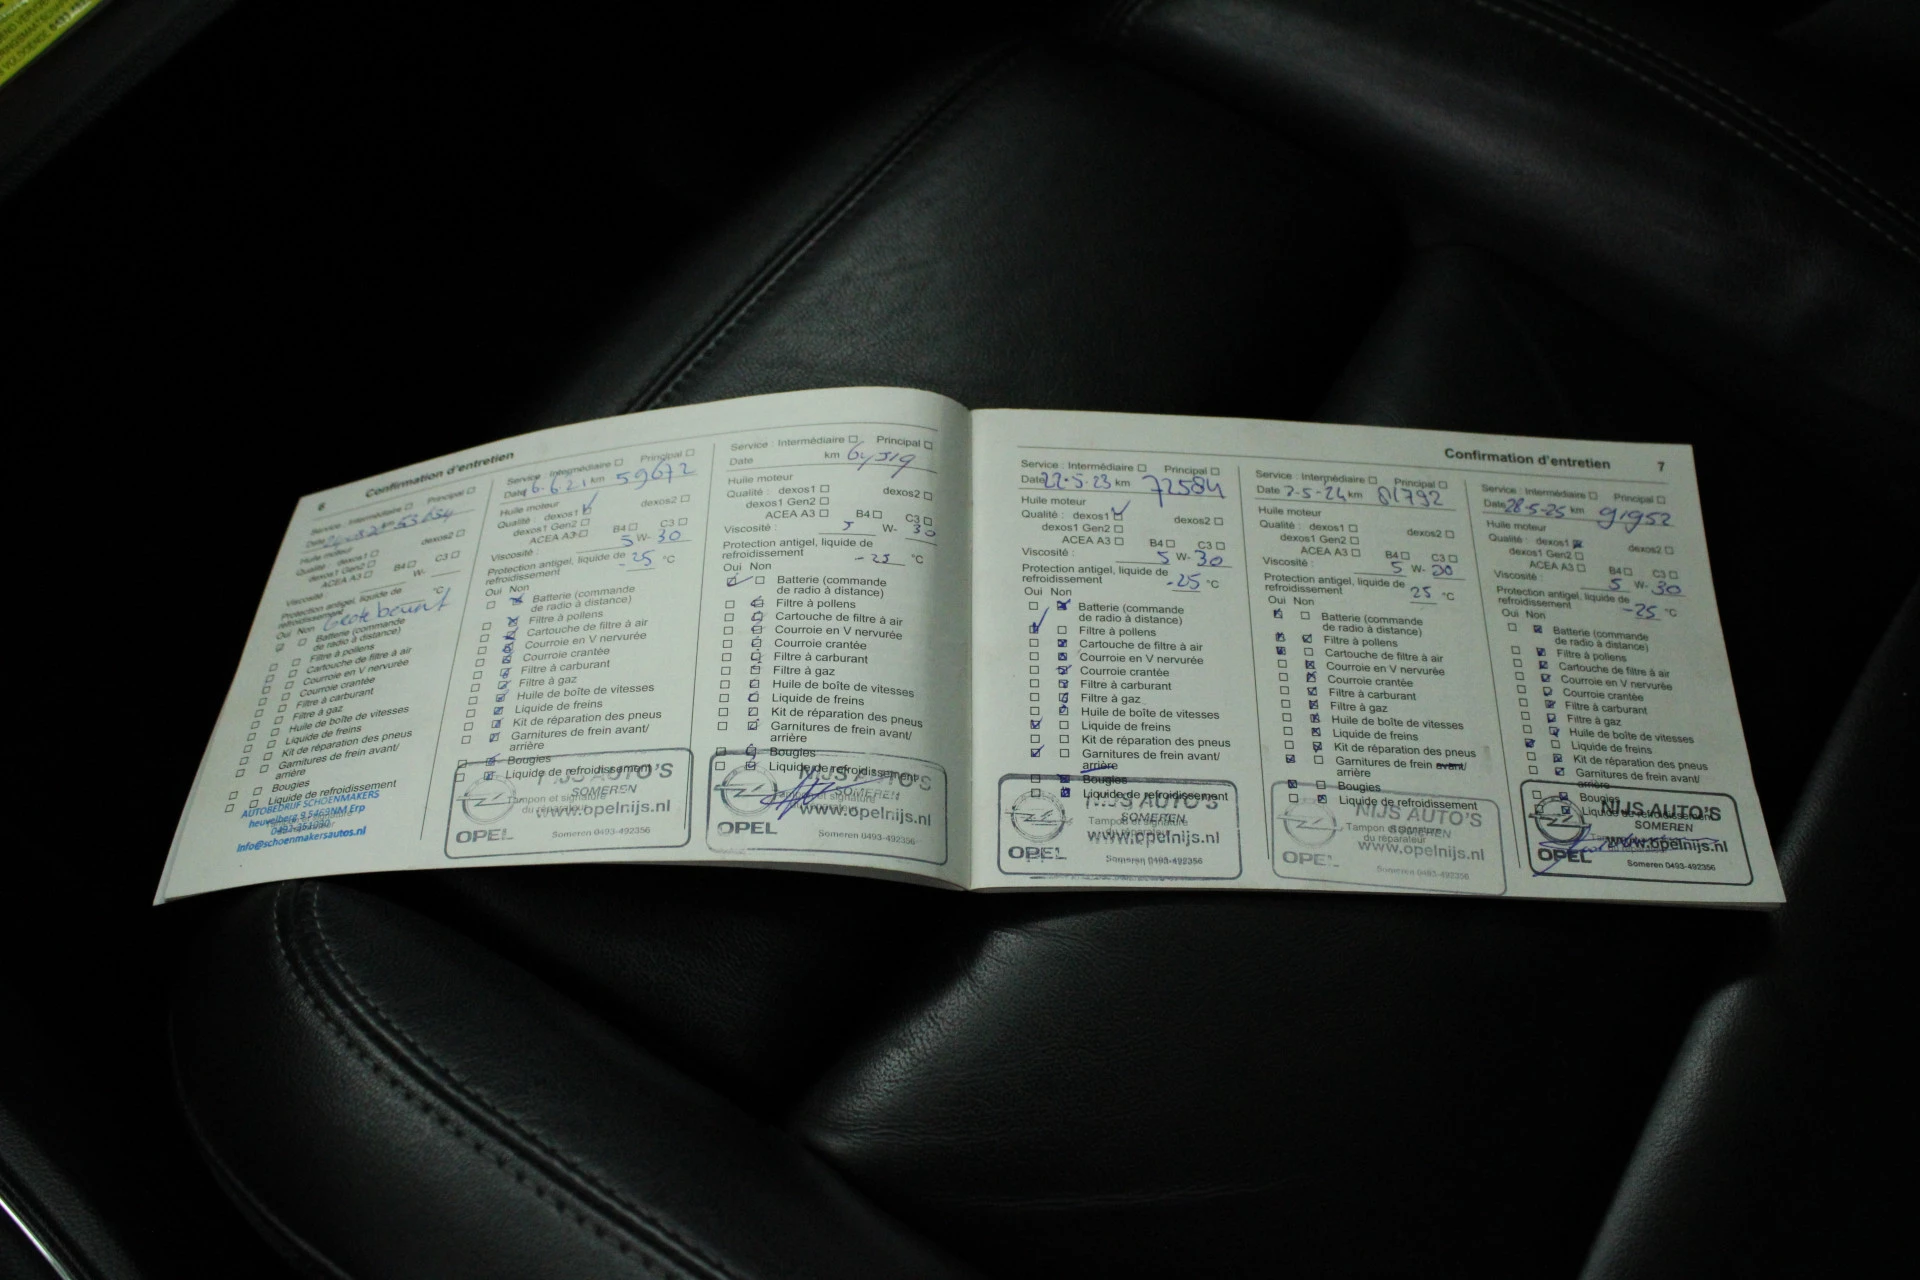 6
Confirmation d'entretien
Service : Intermédiaire Principal
Date km 53634
Huile moteur
Qualité : dexos1 dexos2
dexos1 Gen2
ACEA A3 B4 C3
Viscosité : W-
Protection antigel, liquide de
refroidissement °C
Grote beurt
Oui Non
Batterie (commande
de radio à distance)
Filtre à pollens
Cartouche de filtre à air
Courroie en V nervurée
Courroie crantée
Filtre à carburant
Filtre à gaz
Huile de boîte de vitesses
Liquide de freins
Kit de réparation des pneus
Garnitures de frein avant/
arrière
Bougies
Liquide de refroidissement
AUTOBEDRIJF SCHOENMAKERS
heuvelberg 9 5469NM Erp
info@schoenmakersautos.nl
Service : Intermédiaire Principal
Date 6-6-21 km 59672
Huile moteur
Qualité : dexos1 dexos2
dexos1 Gen2
ACEA A3 B4 C3
Viscosité : 5 W- 30
Protection antigel, liquide de
refroidissement -25 °C
Oui Non
Batterie (commande
de radio à distance)
Filtre à pollens
Cartouche de filtre à air
Courroie en V nervurée
Courroie crantée
Filtre à carburant
Filtre à gaz
Huile de boîte de vitesses
Liquide de freins
Kit de réparation des pneus
Garnitures de frein avant/
arrière
Bougies
Liquide de refroidissement
NIJS AUTO'S
SOMEREN
Tampon et signature
du réparateur
www.opelnijs.nl
OPEL
Someren 0493-492356
Service : Intermédiaire Principal
Date km 64519
Huile moteur
Qualité : dexos1 dexos2
dexos1 Gen2
ACEA A3 B4 C3
Viscosité : 5 W- 30
Protection antigel, liquide de
refroidissement -25 °C
Oui Non
Batterie (commande
de radio à distance)
Filtre à pollens
Cartouche de filtre à air
Courroie en V nervurée
Courroie crantée
Filtre à carburant
Filtre à gaz
Huile de boîte de vitesses
Liquide de freins
Kit de réparation des pneus
Garnitures de frein avant/
arrière
Bougies
Liquide de refroidissement
NIJS AUTO'S
SOMEREN
www.opelnijs.nl
OPEL
Someren 0493-492356
Confirmation d'entretien
7
Service : Intermédiaire Principal
Date 22-5-23 km 72584
Huile moteur
Qualité : dexos1 dexos2
dexos1 Gen2
ACEA A3 B4 C3
Viscosité : 5 W- 30
Protection antigel, liquide de
refroidissement -25 °C
Oui Non
Batterie (commande
de radio à distance)
Filtre à pollens
Cartouche de filtre à air
Courroie en V nervurée
Courroie crantée
Filtre à carburant
Filtre à gaz
Huile de boîte de vitesses
Liquide de freins
Kit de réparation des pneus
Garnitures de frein avant/
arrière
Bougies
Liquide de refroidissement
NIJS AUTO'S
SOMEREN
Tampon et signature
du réparateur
www.opelnijs.nl
OPEL
Someren 0493-492356
Service : Intermédiaire Principal
Date 7-5-24 km 81792
Huile moteur
Qualité : dexos1 dexos2
dexos1 Gen2
ACEA A3 B4 C3
Viscosité : 5 W- 30
Protection antigel, liquide de
refroidissement 25 °C
Oui Non
Batterie (commande
de radio à distance)
Filtre à pollens
Cartouche de filtre à air
Courroie en V nervurée
Courroie crantée
Filtre à carburant
Filtre à gaz
Huile de boîte de vitesses
Liquide de freins
Kit de réparation des pneus
Garnitures de frein avant/
arrière
Bougies
Liquide de refroidissement
NIJS AUTO'S
SOMEREN
Tampon et signature
du réparateur
www.opelnijs.nl
OPEL
Someren 0493-492356
Service : Intermédiaire Principal
Date 28-5-25 km 91952
Huile moteur
Qualité : dexos1 dexos2
dexos1 Gen2
ACEA A3 B4 C3
Viscosité : 5 W- 30
Protection antigel, liquide de
refroidissement -25 °C
Oui Non
Batterie (commande
de radio à distance)
Filtre à pollens
Cartouche de filtre à air
Courroie en V nervurée
Courroie crantée
Filtre à carburant
Filtre à gaz
Huile de boîte de vitesses
Liquide de freins
Kit de réparation des pneus
Garnitures de frein avant/
arrière
Bougies
Liquide de refroidissement
NIJS AUTO'S
SOMEREN
www.opelnijs.nl
OPEL
Someren 0493-492356